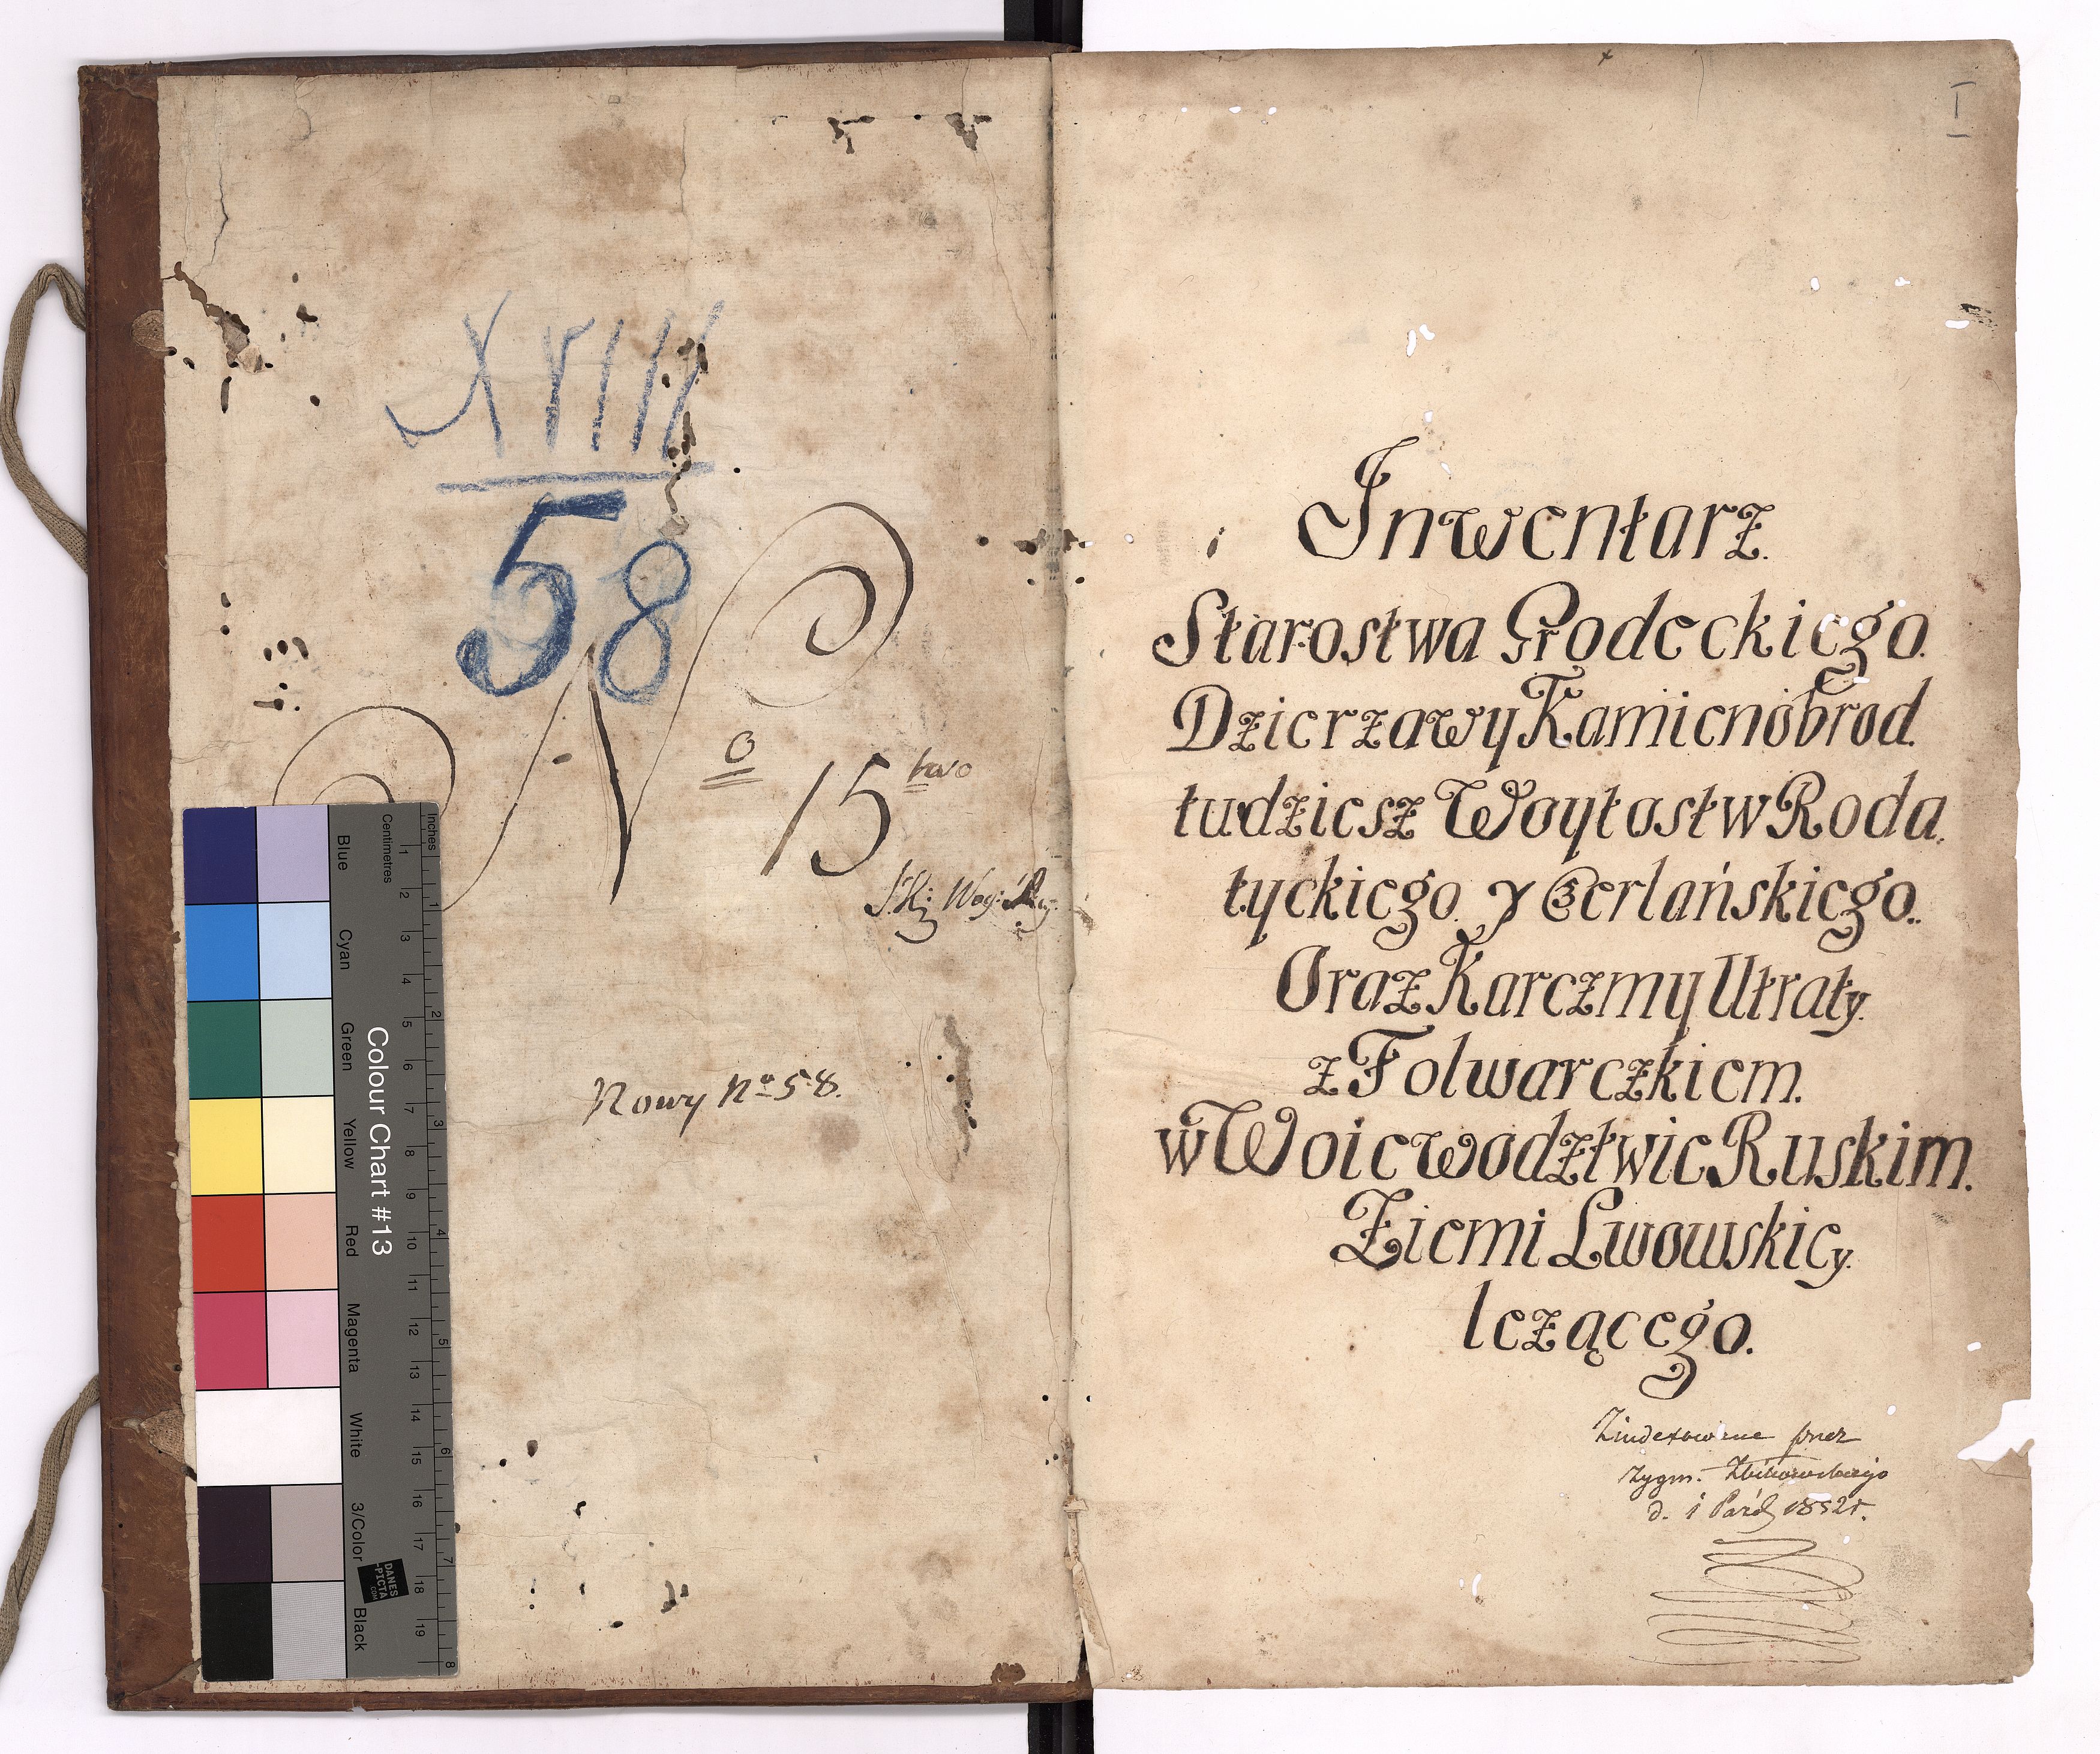 XVIII
58
No 15 two
Nowy No 58.
Inches
Centimetres
Colour Chart #13
Blue
Cyan
Green
Yellow
Red
Magenta
White
3/Color
Black
DANES
PICTA
.COM
1 2 3 4 5 6 7 8 9 10 11 12 13 14 15 16 17 18 19
1 2 3 4 5 6 7 8
I
Inwentarz.
Starostwa Grodeckiego.
Dzierzawy Kamienobrod.
tudziesz Woytostw Roda
tyckiego. y Czerlańskiego.
Oraz Karczmy Utraty.
z Folwarczkiem.
w Woiewodztwie Ruskim.
Ziemi Lwowskiey.
leżącego.
Zindexowane przez
Zygm.
d. 1 Paźdz 1852r.